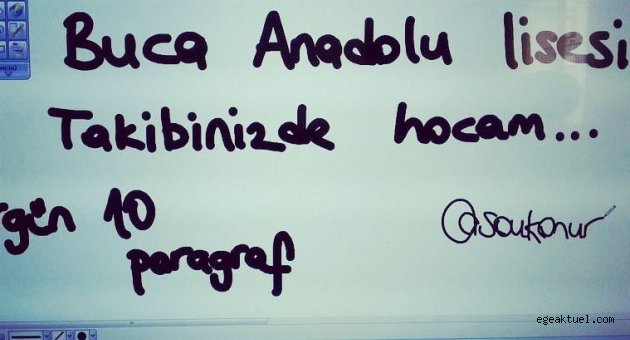 Buca Anadolu lisesi
Takibinizde hocam...
rgün 10
paragraf
@soukonur
egeaktuel.com